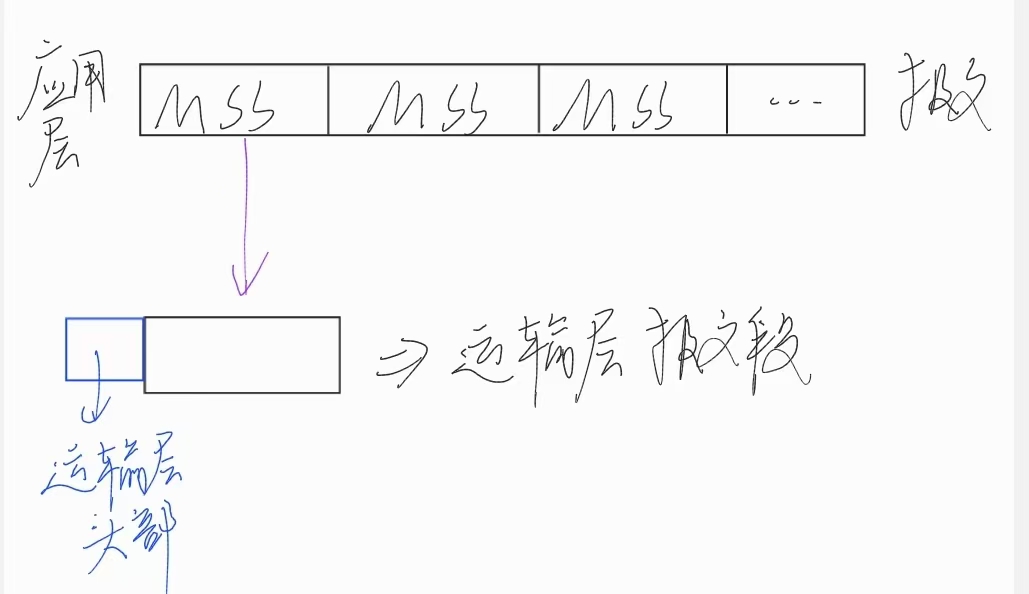 应用层
MSS MSS MSS ...
报文
⇒ 运输层报文段
运输层
头部